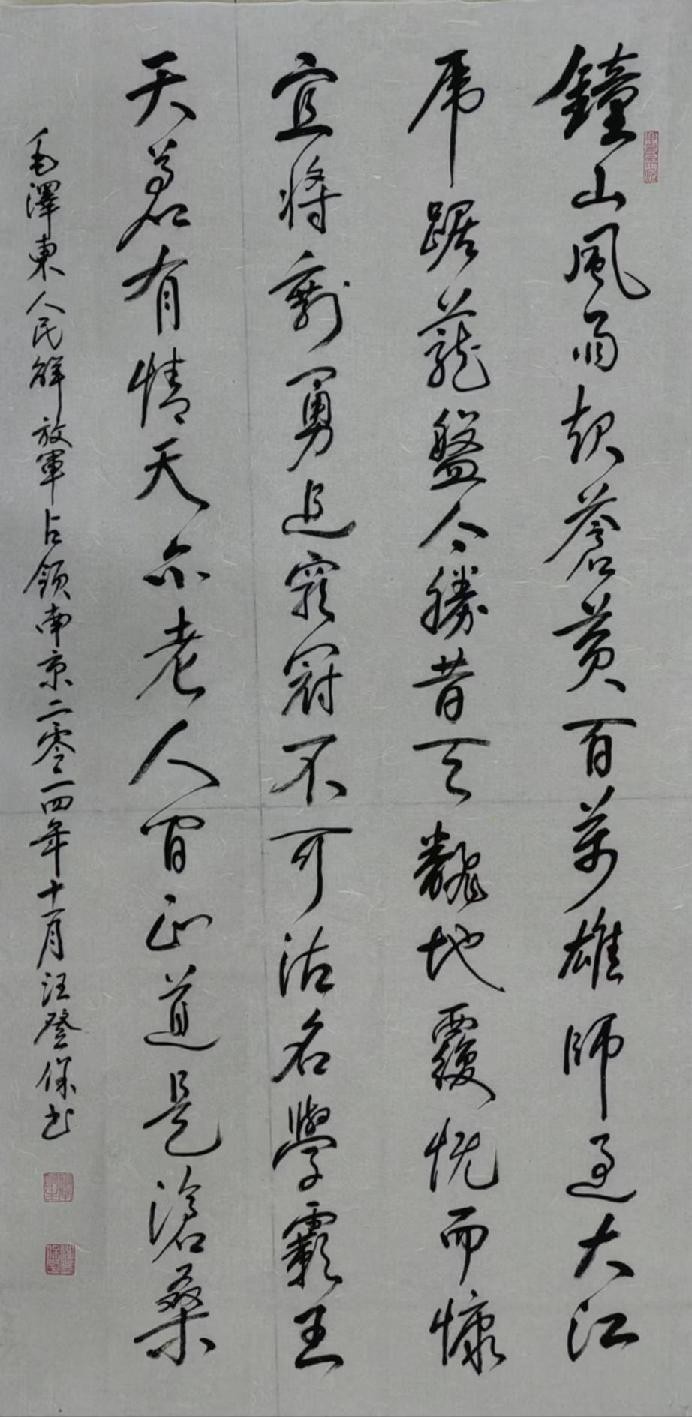 鐘山風雨起蒼黃百萬雄師過大江
虎踞蘢盤今勝昔天翻地覆慨而慷
宜將剩勇追窮寇不可沽名學霸王
天若有情天亦老人间正道是滄桑
毛澤東人民解放軍占領南京二零一四年十一月汪登保书